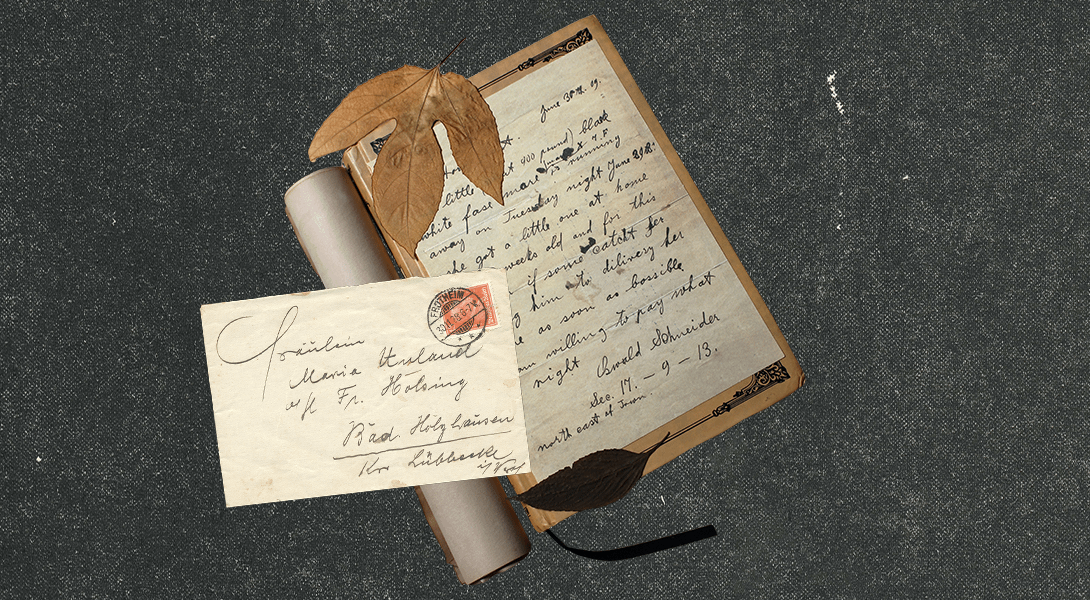 June 30th. 09.
900 pound) black
little
white fase mare is running
away on Tuesday night June 29th:
she got a little one at home
weeks old and for this
if some catcht her
him to dilivery her
as soon as bossible
willing to pay what
night Oswald Schneider
Sec. 17. – 9 – 13.
north east of Town.
FROTHEIM
Fräulein
Maria
Fr. Hölsing
Bad. Holzhausen
Krs Lübbecke